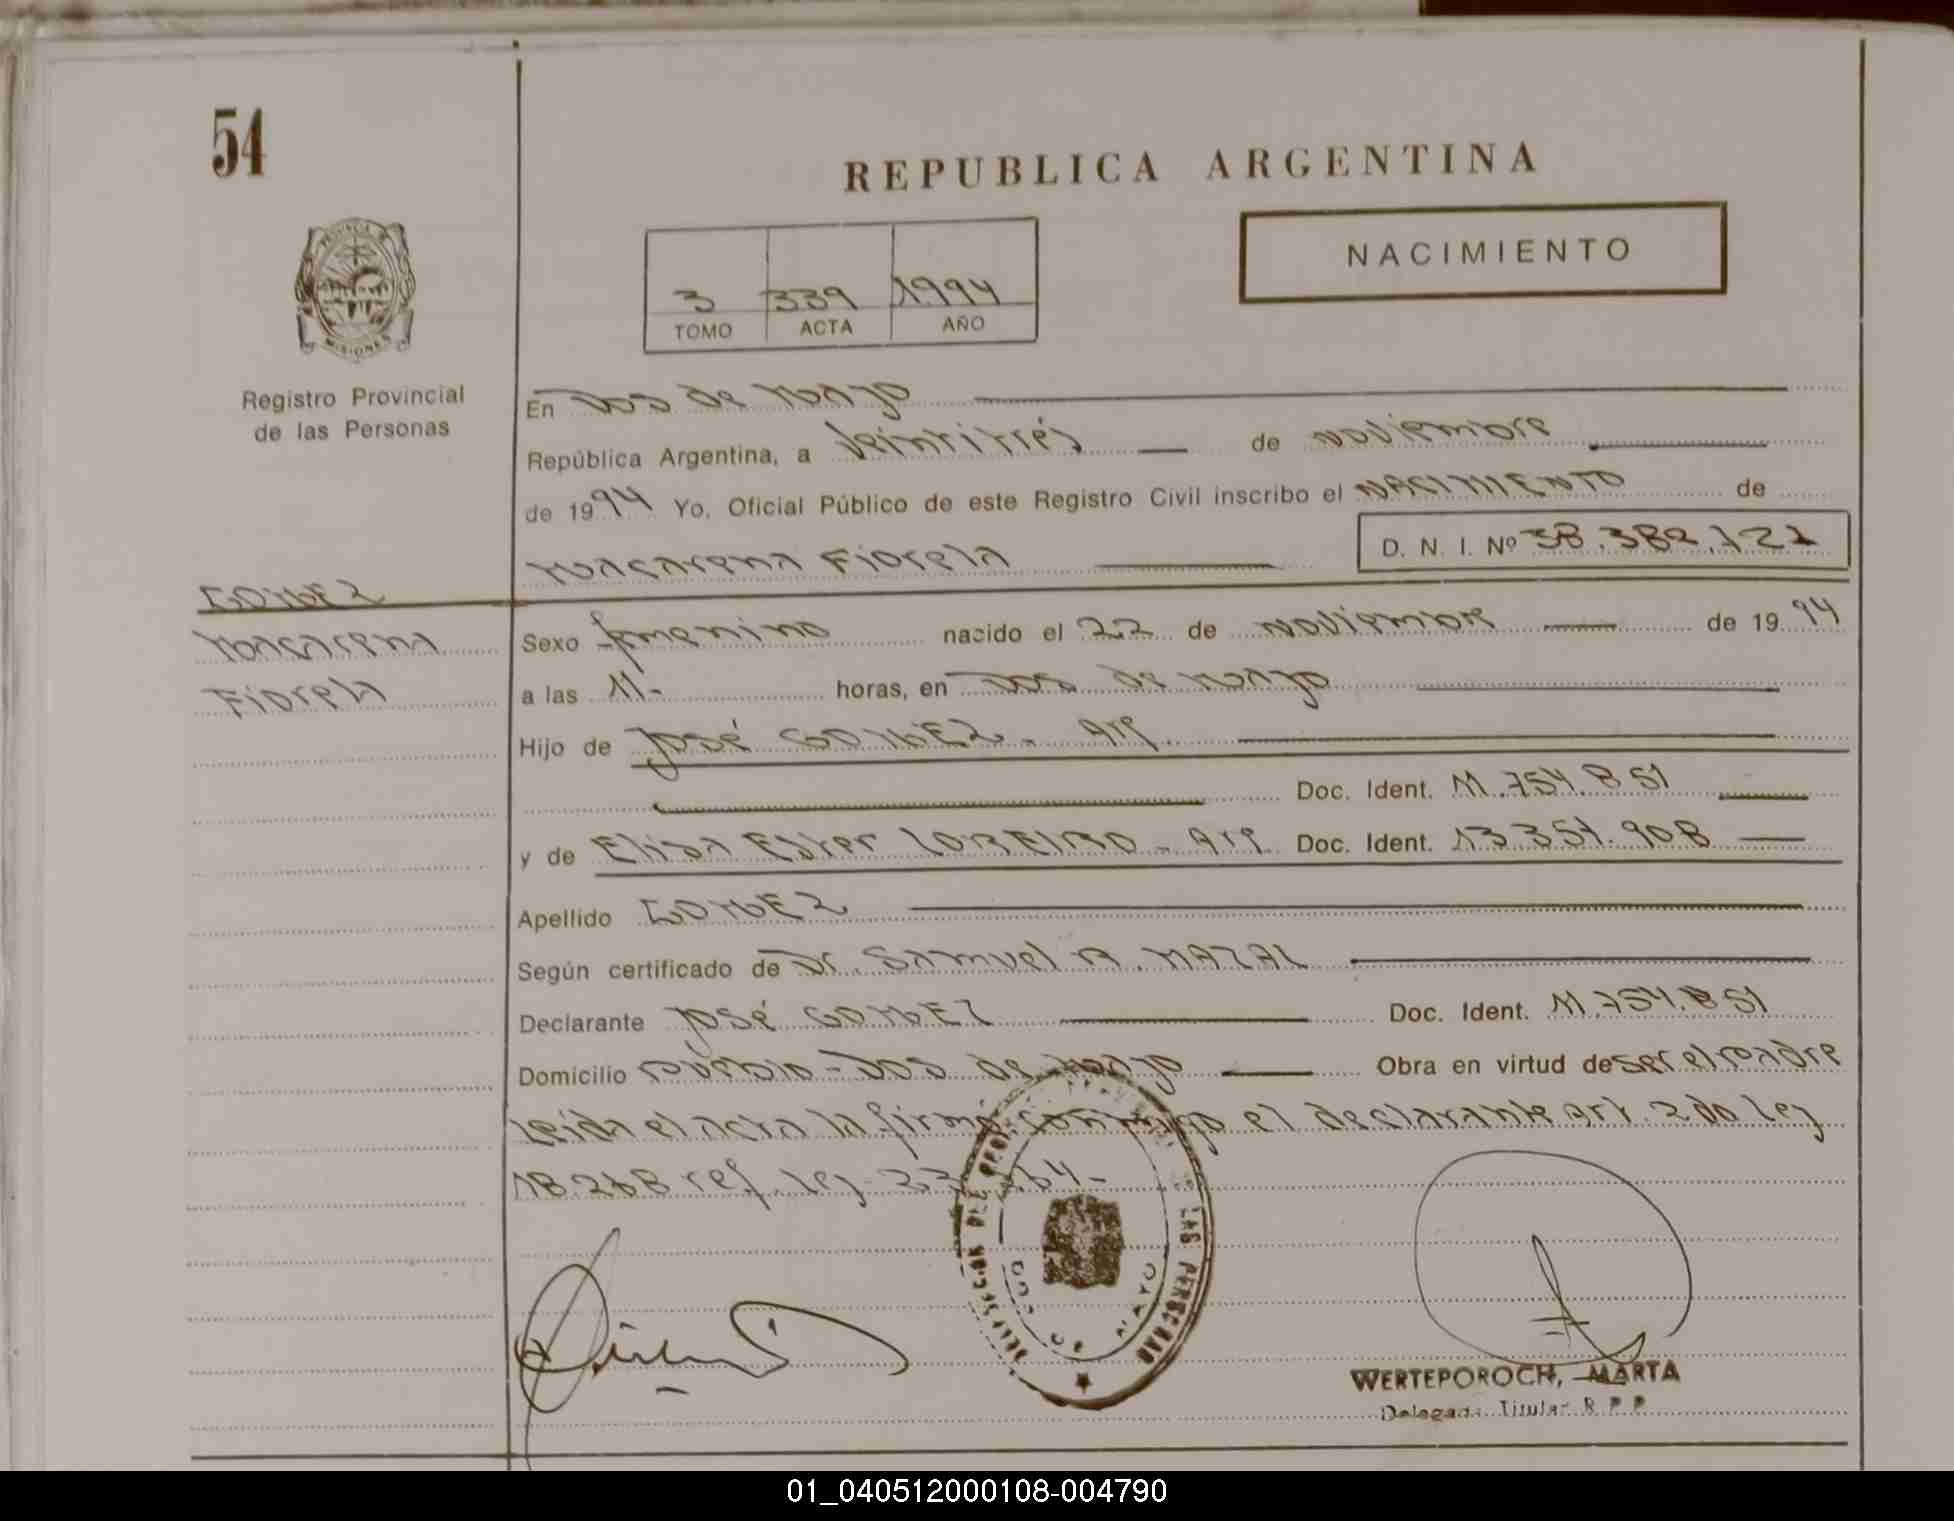 54
REPUBLICA ARGENTINA
PROVINCIA DE
MISIONES
NACIMIENTO
3 339 1994
TOMO ACTA AÑO
Registro Provincial
de las Personas
En Dos de Mayo
República Argentina, a veintitrés de noviembre
de 1994 Yo, Oficial Público de este Registro Civil inscribo el NACIMIENTO de
D. N. I. Nº 38.382.721
Macarena Fiorela
GOMEZ
Macarena
Fiorela
Sexo femenino nacido el 22 de noviembre de 1994
a las 11- horas, en Dos de Mayo
Hijo de José GOMEZ - Arg.
Doc. Ident. 11.754.851
y de Elisa Ester - Arg Doc. Ident. 13.351.908
Apellido GOMEZ
Según certificado de Dr. Samuel A. MAZAL
Declarante José GOMEZ Doc. Ident. 11.754.851
Domicilio Pueblo - Dos de Mayo Obra en virtud de ser el padre
Leída el acta la firma conmigo el declarante Art. 2do Ley
18.248 ref. Ley
DELEGACION DEL REGISTRO DE LAS PERSONAS
DOS DE MAYO
WERTEPOROCH, MARTA
Delegada Titular R P P
01_040512000108-004790